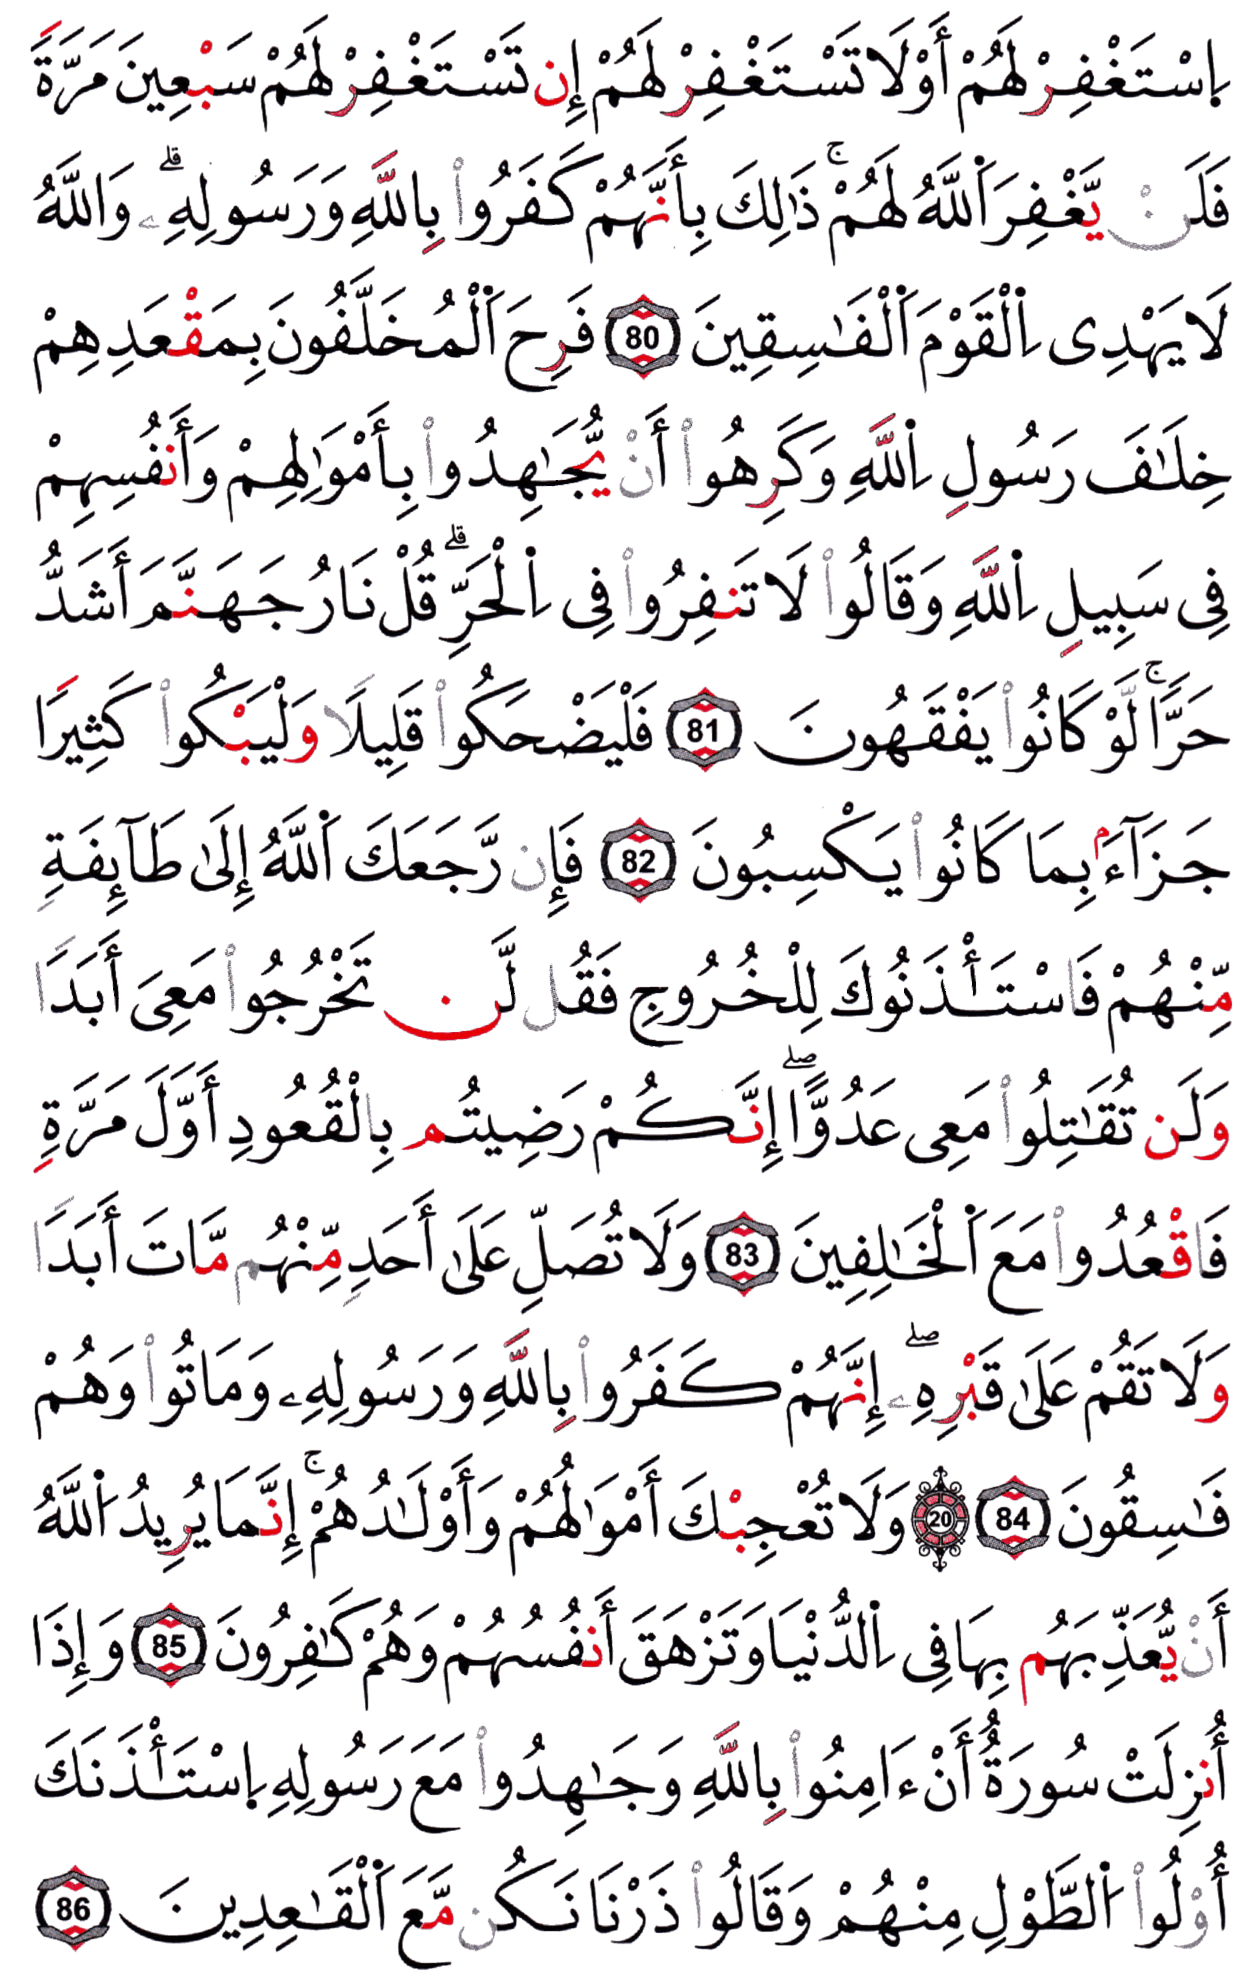 اِسْتَغْفِرْ لَهُمْ أَوْ لَا تَسْتَغْفِرْ لَهُمْ إِن تَسْتَغْفِرْ لَهُمْ سَبْعِينَ مَرَّةً
فَلَنْ يَّغْفِرَ اَللَّهُ لَهُمْ ۚ ذَٰلِكَ بِأَنَّهُمْ كَفَرُوا۟ بِاللَّهِ وَرَسُولِهِۦ ۗ وَاللَّهُ
لَا يَهْدِى اِلْقَوْمَ اَلْفَٰسِقِينَ 80 فَرِحَ اَلْمُخَلَّفُونَ بِمَقْعَدِهِمْ
خِلَٰفَ رَسُولِ اِللَّهِ وَكَرِهُوا۟ أَنْ يُّجَٰهِدُوا۟ بِأَمْوَٰلِهِمْ وَأَنفُسِهِمْ
فِى سَبِيلِ اِللَّهِ وَقَالُوا۟ لَا تَنفِرُوا۟ فِى اِلْحَرِّ ۗ قُلْ نَارُ جَهَنَّمَ أَشَدُّ
حَرًّا ۚ لَّوْ كَانُوا۟ يَفْقَهُونَ 81 فَلْيَضْحَكُوا۟ قَلِيلًا وَلْيَبْكُوا۟ كَثِيرًا
جَزَآءَۢ بِمَا كَانُوا۟ يَكْسِبُونَ 82 فَإِن رَّجَعَكَ اَللَّهُ إِلَىٰ طَآئِفَةٍ
مِّنْهُمْ فَاسْتَـْٔذَنُوكَ لِلْخُرُوجِ فَقُل لَّن تَخْرُجُوا۟ مَعِىَ أَبَدًا
وَلَن تُقَٰتِلُوا۟ مَعِى عَدُوًّا ۖ إِنَّكُمْ رَضِيتُم بِالْقُعُودِ أَوَّلَ مَرَّةٍ
فَاقْعُدُوا۟ مَعَ اَلْخَٰلِفِينَ 83 وَلَا تُصَلِّ عَلَىٰ أَحَدٍ مِّنْهُم مَّاتَ أَبَدًا
وَلَا تَقُمْ عَلَىٰ قَبْرِهِۦ ۖ إِنَّهُمْ كَفَرُوا۟ بِاللَّهِ وَرَسُولِهِۦ وَمَاتُوا۟ وَهُمْ
فَٰسِقُونَ 84 20 وَلَا تُعْجِبْكَ أَمْوَٰلُهُمْ وَأَوْلَٰدُهُمْ ۚ إِنَّمَا يُرِيدُ اَللَّهُ
أَنْ يُّعَذِّبَهُم بِهَا فِى اِلدُّنْيَا وَتَزْهَقَ أَنفُسُهُمْ وَهُمْ كَٰفِرُونَ 85 وَإِذَا
أُنزِلَتْ سُورَةٌ أَنْ ءَامِنُوا۟ بِاللَّهِ وَجَٰهِدُوا۟ مَعَ رَسُولِهِ اِسْتَـْٔذَنَكَ
أُو۟لُوا۟ اُلطَّوْلِ مِنْهُمْ وَقَالُوا۟ ذَرْنَا نَكُن مَّعَ اَلْقَٰعِدِينَ 86